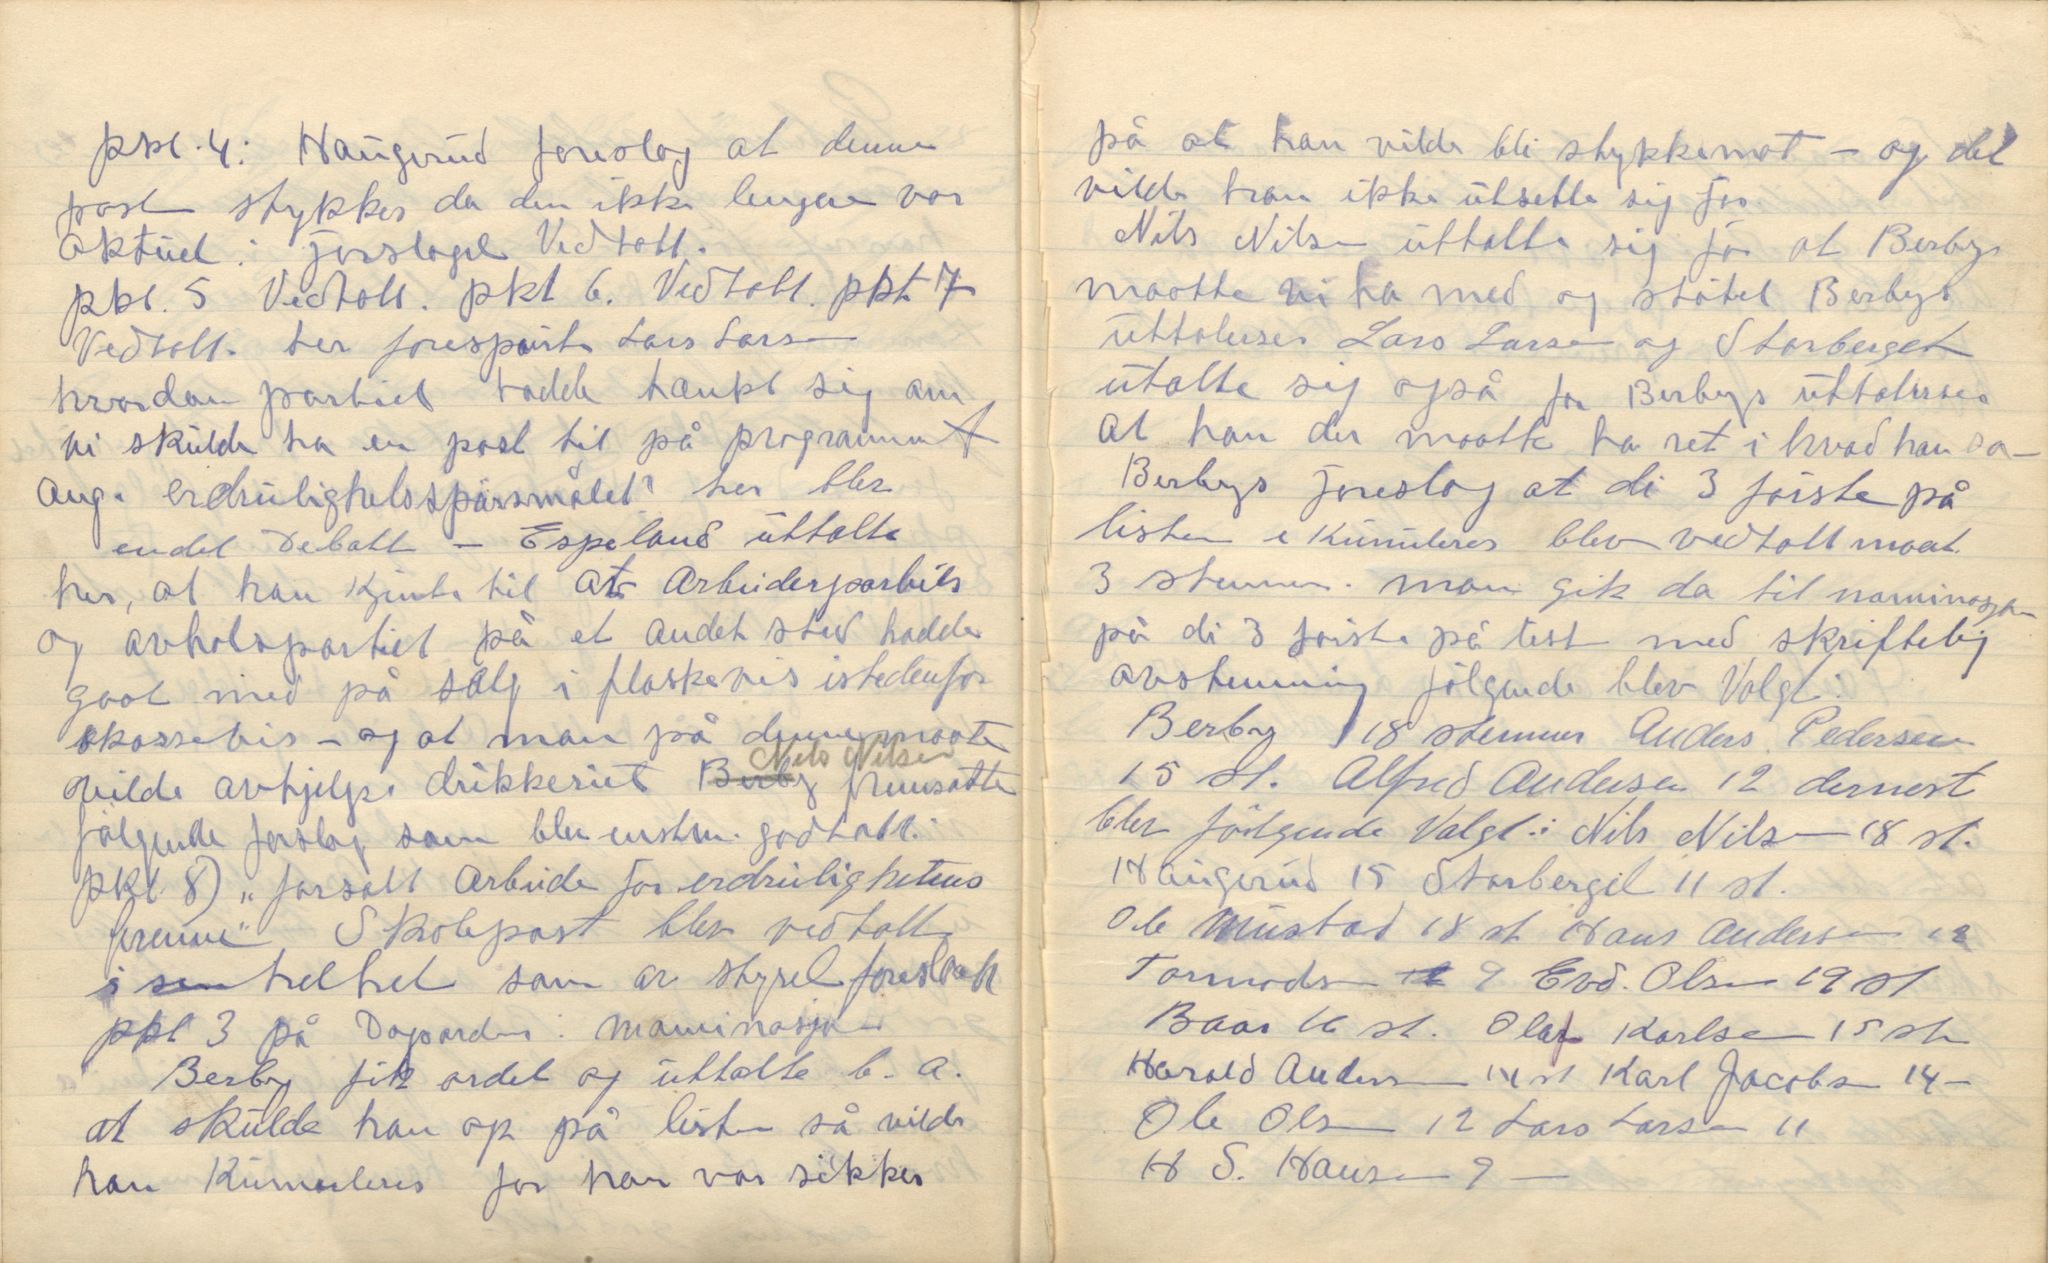 pkt. 4: Haugerud foreslog at denne
post stykkes da den ikke lengere var
aktuel: forslaget Vedtatt.
pkt. 5 Vedtatt. pkt 6. Vedtatt. pkt 7
Vedtatt. her forespurte Lars Larsen
hvordan partiet hadde tænkt sig om
vi skulde ha en post til på programmet
ang. edruelighetsspørsmålet? her blev
endel Debatt — Espeland uttalte
her, at han kjente til at Arbeiderpartiet
og avholdspartiet på et andet sted hadde
gaat med på salg i flaskevis istedenfor
kassevis — og at man på denne maate
vilde avhjelpe drikkeriet Berby Nils Nilsen fremsatte
følgende forslag som blev enstem. godtatt:
pkt. 8) „ forsatt Arbeide for edruelighetens
fremme" Skolepost blev vedtatt
i sen helhet som av styret foreslaatt
pkt 3 på Dagsorden: nominasjon
Berby fik ordet og uttalte b. a.
at skulde han op på listen så vilde
han Kumuleres for han var sikker
på at han vilde bli strykkemot — og det
vilde han ikke utsette sig for
Nils Nilsen uttalte sig for at Berby
maatte vi ha med og støtet Berbys
uttalelser Lars Larsen og Storberget
utalte sig også for Berbys uttalelser
at han der maatte ha ret i hvad han sa —
Berbys foreslog at di 3 føiste på
listen Kumuleres blev vedtatt moat
3 stemmer. man gik da til nominasjon
på di 3 føiste på test med skriftelig
avstemning følgende blev Valgt:
Berby 18 stemmer Anders Pedersen
15 st. Alfred Andersen 12 dernest
blev følgende Valgt: Nils Nilsen 18 st.
Haugerud 15 Storberget 11 st.
Ole Mustad 18 st Hans Andersen 18
Tormodsen 9 Edv. Olsen 19 st
Baar 16 st. Olaf Karlsen 15 st
Harald Andersen 14 st Karl Jacobsen 14 —
Ole Olsen 12 Lars Larsen 11
H S. Hansen 9 —